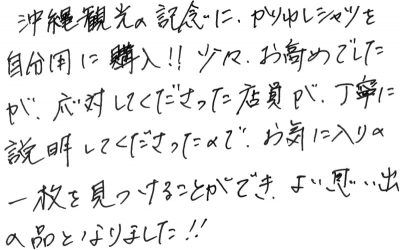 沖縄観光の記念に、かりゆしシャツを
自分用に購入!! 少々、お高めでした
が、応対してくださった店員が、丁寧に
説明してくださったので、お気に入りの
一枚を見つけることができ、よい思い出
の品となりました!!